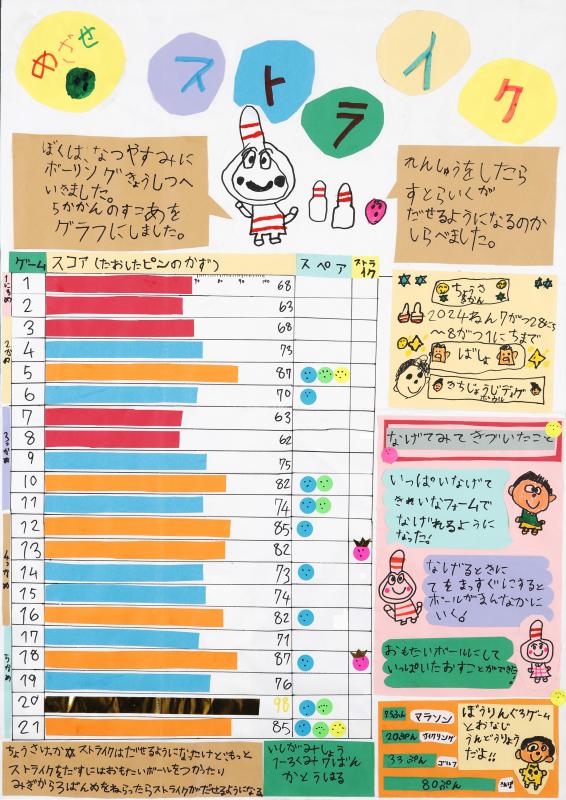 めざせ
ストライク
ぼくは、なつやすみに
ボーリングきょうしつへ
いきました。
5かかんのすこあを
グラフにしました。
れんしゅうをしたら
すとらいくが
だせるようになるのか
しらべました。
ゲーム スコア(たおしたピンのかず) スペア ストライク
1 68
2 63
3 68
4 75
5 87
6 70
7 63
8 62
9 75
10 82
11 74
12 85
13 82
14 73
15 74
16 82
17 71
18 87
19 76
20 98
21 85
1にちめ
2かめ
3っかめ
4っかめ
5かめ
ちょうさ
2024ねん7がつ28にち
~8がつ1にちまで
ばしょ
なげてみてきづいたこと
いっぱいなげて
きれいなフォームで
なげれるように
なった!
なげるときに
てをまっすぐにすると
ボールがまんなかに
いく!
おもたいボールにして
いっぱいたおすことができた
マラソン
サイクリング
33ぷん ゴルフ
80ぷん
ぼうりんぐ3ゲーム
とおなじ
うんどうりょう
だよ!!
ストライクはだせるようになったけどもっと
ストライクをだすにはおもたいボールをつかったり
みぎから3ばんめをねらったらストライクがだせるようになる